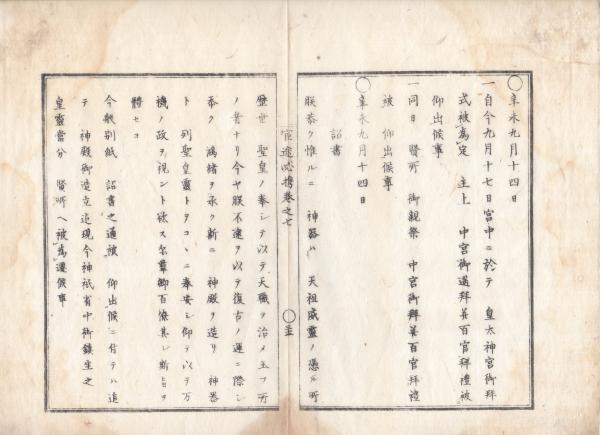 ○辛未九月十四日
一自今九月十七日宮中ニ於テ 皇太神宮御拜
式被爲定 主上 中宮御遥拜並百官拜禮被
仰出候事
一同日 賢所 御親祭 中宮御拜並百官拜禮
被 仰出候事
○辛未九月十四日
詔書
朕恭ク惟ルニ 神器ハ 天祖威靈ノ憑ル所
官途必携巻之七
○
歴世 聖皇ノ奉シテ以テ天職ヲ治メ玉フ所
ノ者ナリ今ヤ朕不逮ヲ以テ復古ノ運ニ際シ
忝ク 鴻緒ヲ承ク新ニ 神殿ヲ造リ 神器
ト 列聖皇靈トヲコヽニ奉安シ仰テ以テ万
機ノ政ヲ視ント欲ス尓群卿百僚其レ斯旨ヲ
體セヨ
今般別紙 詔書之通被 仰出候ニ付テハ追
テ 神殿御造立迄現今神祇省中御鎮坐之
皇靈當分 賢所ヘ被爲遷候事